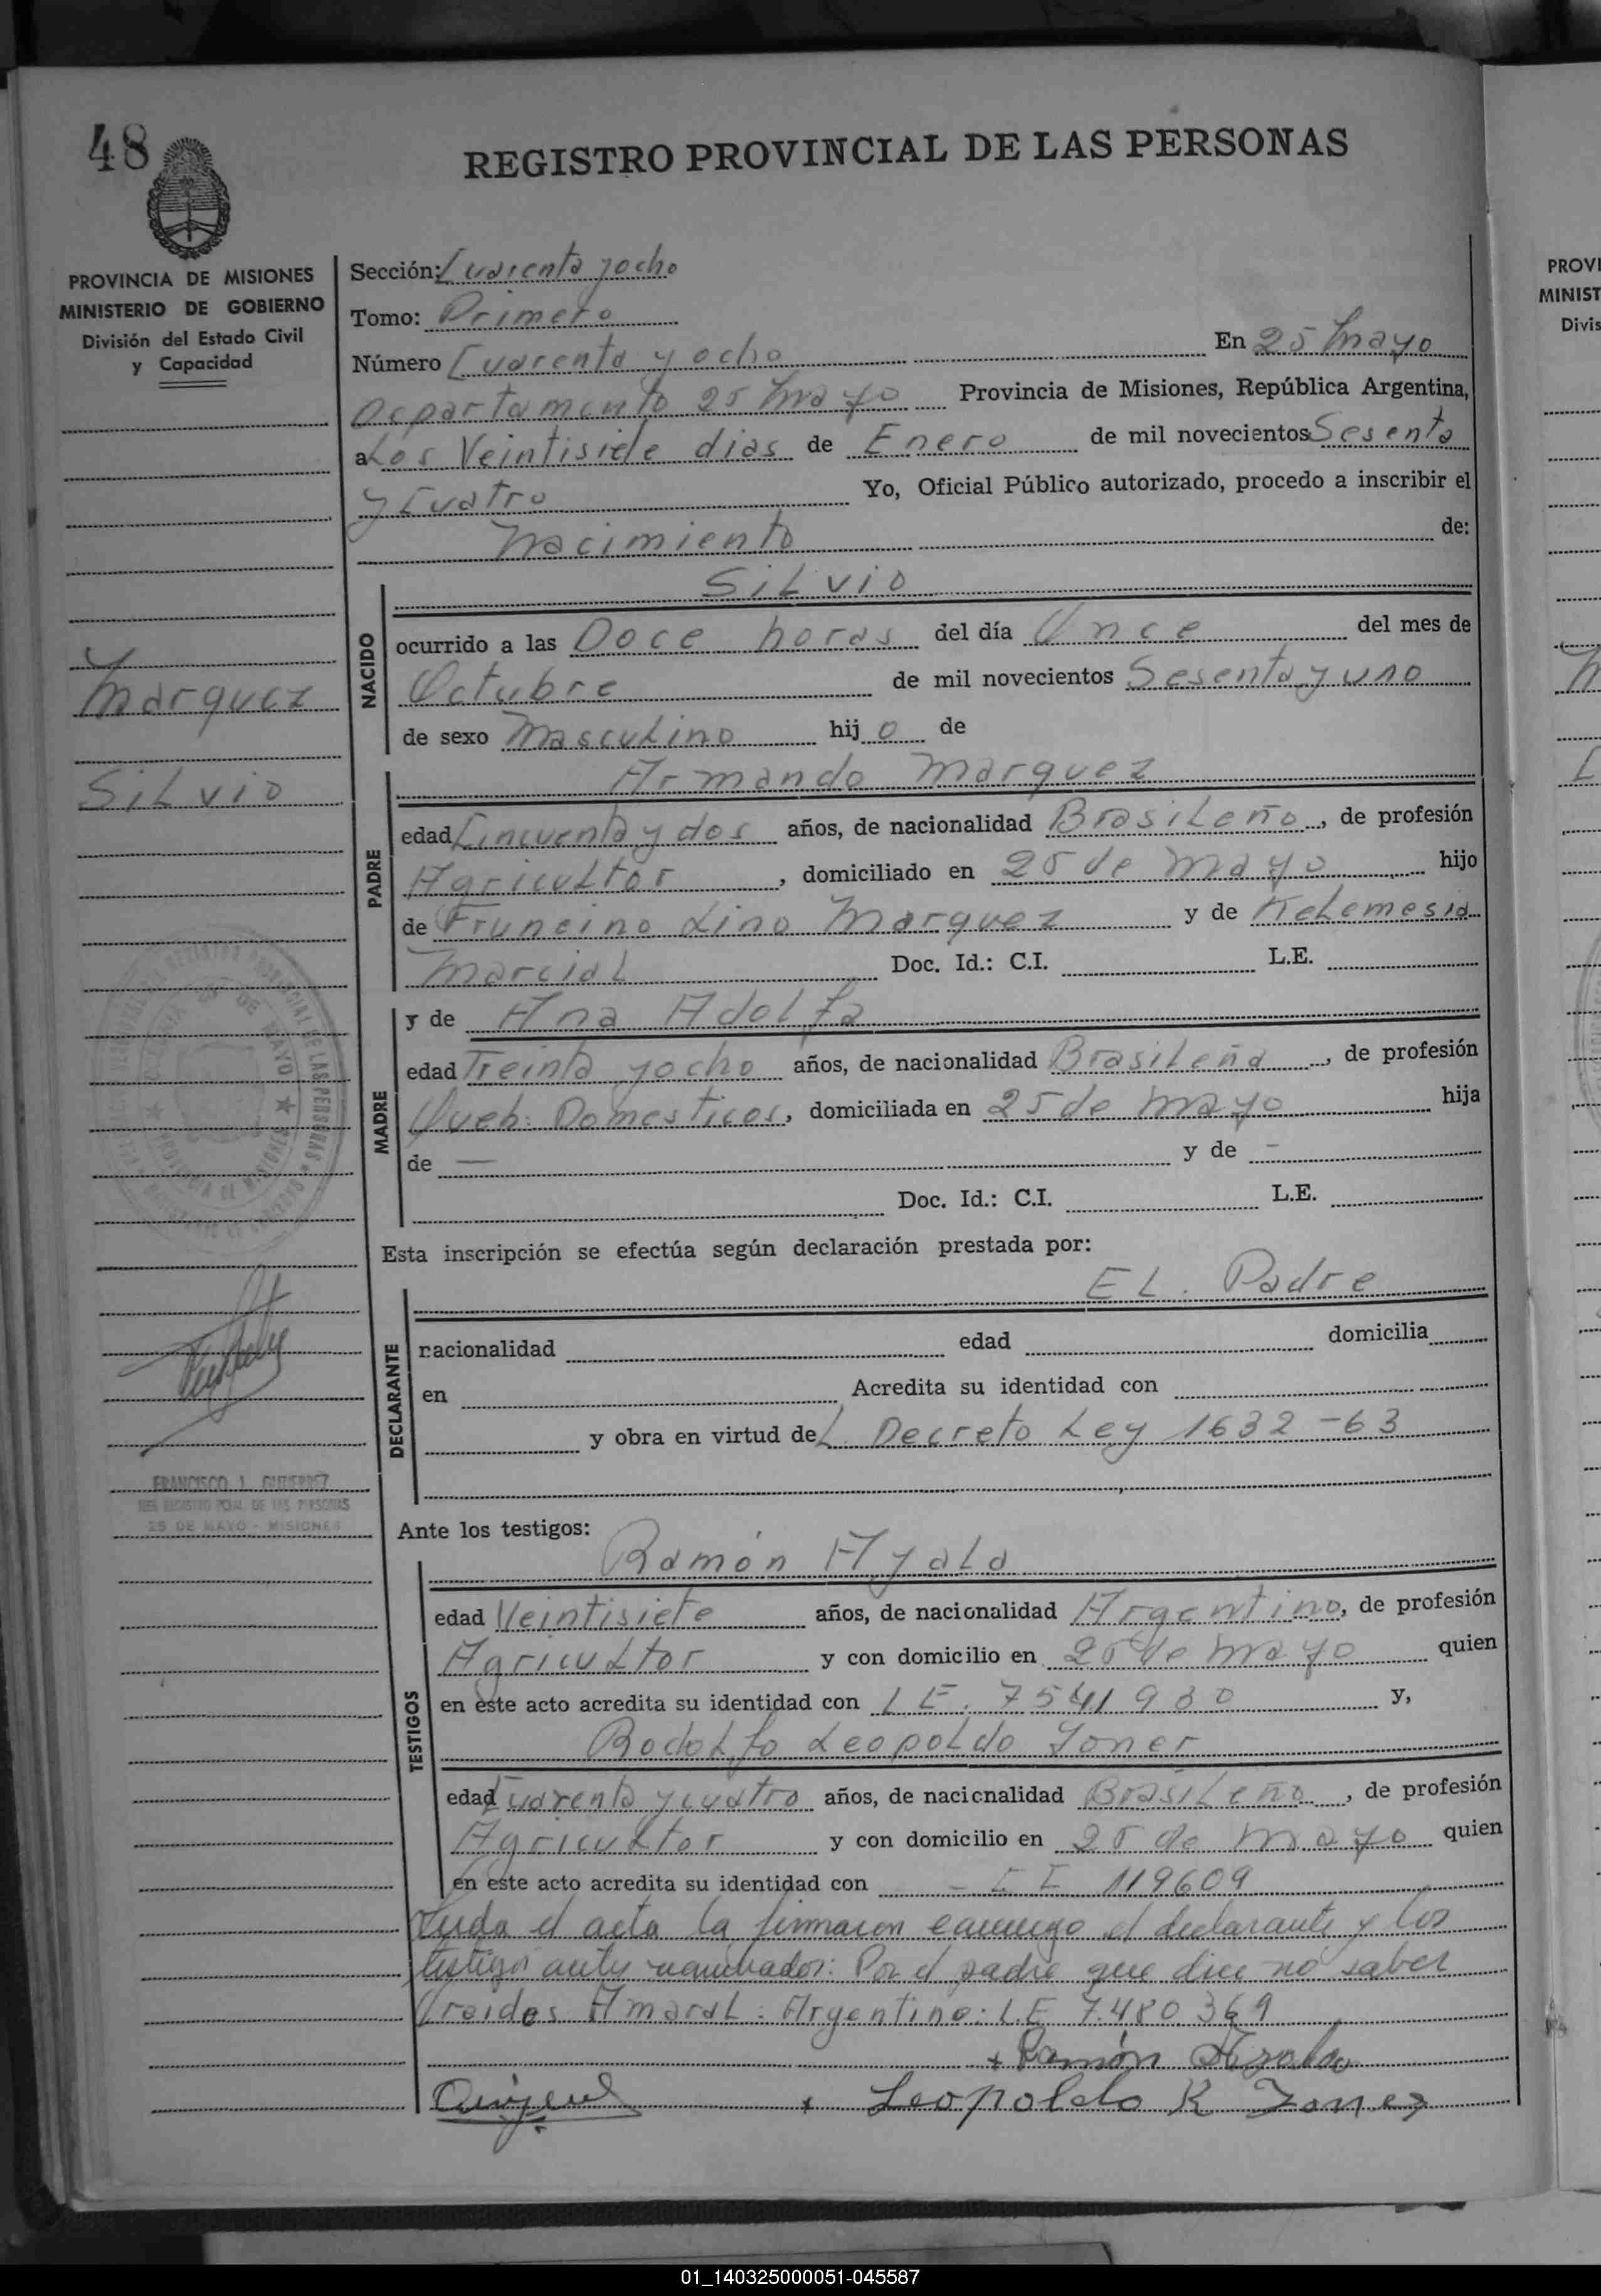 48
REGISTRO PROVINCIAL DE LAS PERSONAS
PROVINCIA DE MISIONES
MINISTERIO DE GOBIERNO
División del Estado Civil
y Capacidad
Marquez
Silvio
Sección: Cuarenta yocho
Tomo: Primero
Número Cuarenta y ocho En 25 Mayo
Departamento 25 Mayo Provincia de Misiones, República Argentina,
a Los Veintisiete dias de Enero de mil novecientos Sesenta
y Cuatro Yo, Oficial Público autorizado, procedo a inscribir el
Nacimiento de:
NACIDO
Silvio
ocurrido a las Doce horas del día Once del mes de
Octubre de mil novecientos Sesenta y uno
de sexo Masculino hij o de
PADRE
Armando Marquez
edad Cincuenta y dos años, de nacionalidad Brasileño, de profesión
Agricultor, domiciliado en 25 de Mayo hijo
de Lino Marquez y de
Marcial Doc. Id.: C.I. L.E.
MADRE
y de Ana Adolfa
edad Treinta yocho años, de nacionalidad Brasileña, de profesión
Queh. Domesticos, domiciliada en 25 de Mayo hija
de — y de -
Doc. Id.: C.I. L.E.
Esta inscripción se efectúa según declaración prestada por:
DECLARANTE
EL. Padre
nacionalidad edad domicilia
en Acredita su identidad con
y obra en virtud de L. Decreto Ley 1632-63
FRANCISCO J. GUTIERREZ
JEFE REGISTRO PCIAL. DE LAS PERSONAS
25 DE MAYO - MISIONES
Ante los testigos:
TESTIGOS
Ramón Ayala
edad Veintisiete años, de nacionalidad Argentino, de profesión
Agricultor y con domicilio en 25 de Mayo quien
en este acto acredita su identidad con L E. 7541930 y,
Rodolfo Leopoldo Joner
edad Cuarenta y cuatro años, de nacionalidad Brasileño, de profesión
Agricultor y con domicilio en 25 de Mayo quien
en este acto acredita su identidad con 119609
Leida el acta la firmaron conmigo el declarante y los
testigos antes nombrados: Por el padre que dice no saber
Amaral: Argentino: L.E 7.480.369
+ Ramón Ayala
+ Leopoldo R Joner
PROVI
MINIST
Divis
01_140325000051-045587